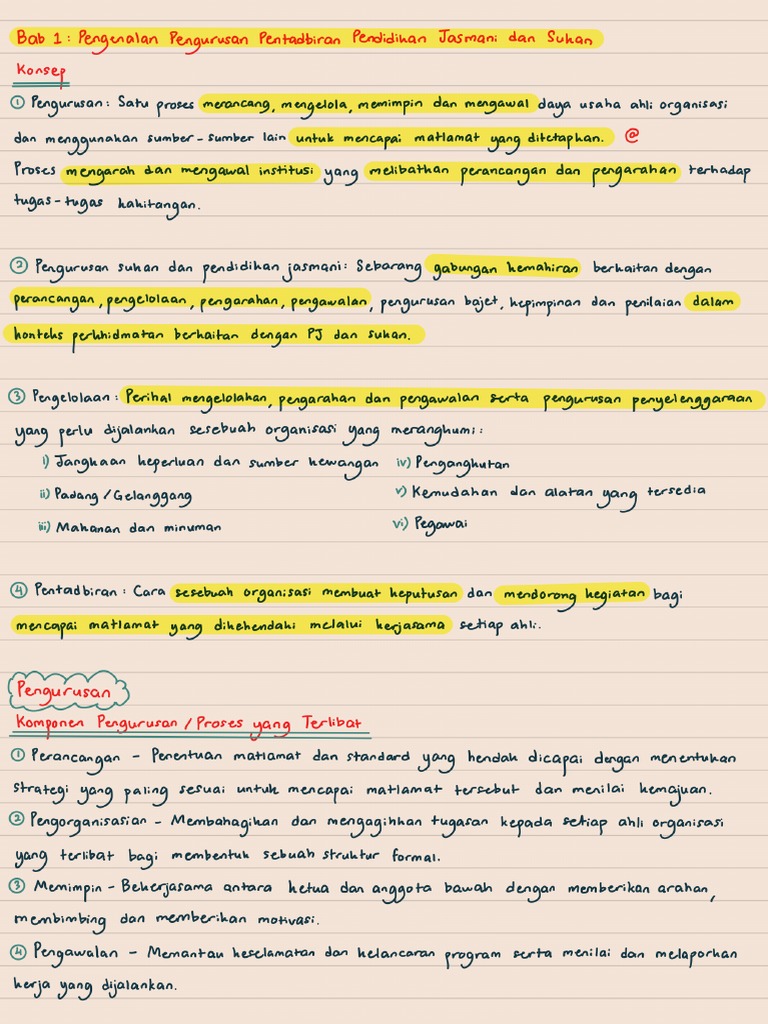 Bab 1: Pengenalan Pengurusan Pentadbiran Pendidikan Jasmani dan Sukan
Konsep
① Pengurusan: Satu proses merancang, mengelola, memimpin dan mengawal daya usaha ahli organisasi
dan menggunakan sumber-sumber lain untuk mencapai matlamat yang ditetapkan. @
Proses mengarah dan mengawal institusi yang melibatkan perancangan dan pengarahan terhadap
tugas-tugas kakitangan.
② Pengurusan sukan dan pendidikan jasmani: Sebarang gabungan kemahiran berkaitan dengan
perancangan, pengelolaan, pengarahan, pengawalan, pengurusan bajet, kepimpinan dan penilaian dalam
konteks perkhidmatan berkaitan dengan PJ dan sukan.
③ Pengelolaan: Perihal mengelolakan, pengarahan dan pengawalan serta pengurusan penyelenggaraan
yang perlu dijalankan sesebuah organisasi yang merangkumi:
i) Jangkaan keperluan dan sumber kewangan iv) Pengangkutan
ii) Padang/Gelanggang v) Kemudahan dan alatan yang tersedia
iii) Makanan dan minuman vi) Pegawai
④ Pentadbiran: Cara sesebuah organisasi membuat keputusan dan mendorong kegiatan bagi
mencapai matlamat yang dikehendaki melalui kerjasama setiap ahli.
Pengurusan
Komponen Pengurusan/Proses yang Terlibat
① Perancangan - Penentuan matlamat dan standard yang hendak dicapai dengan menentukan
strategi yang paling sesuai untuk mencapai matlamat tersebut dan menilai kemajuan.
② Pengorganisasian - Membahagikan dan mengagihkan tugasan kepada setiap ahli organisasi
yang terlibat bagi membentuk sebuah struktur formal.
③ Memimpin - Bekerjasama antara ketua dan anggota bawah dengan memberikan arahan,
membimbing dan memberikan motivasi.
④ Pengawalan - Memantau keselamatan dan kelancaran program serta menilai dan melaporkan
kerja yang dijalankan.